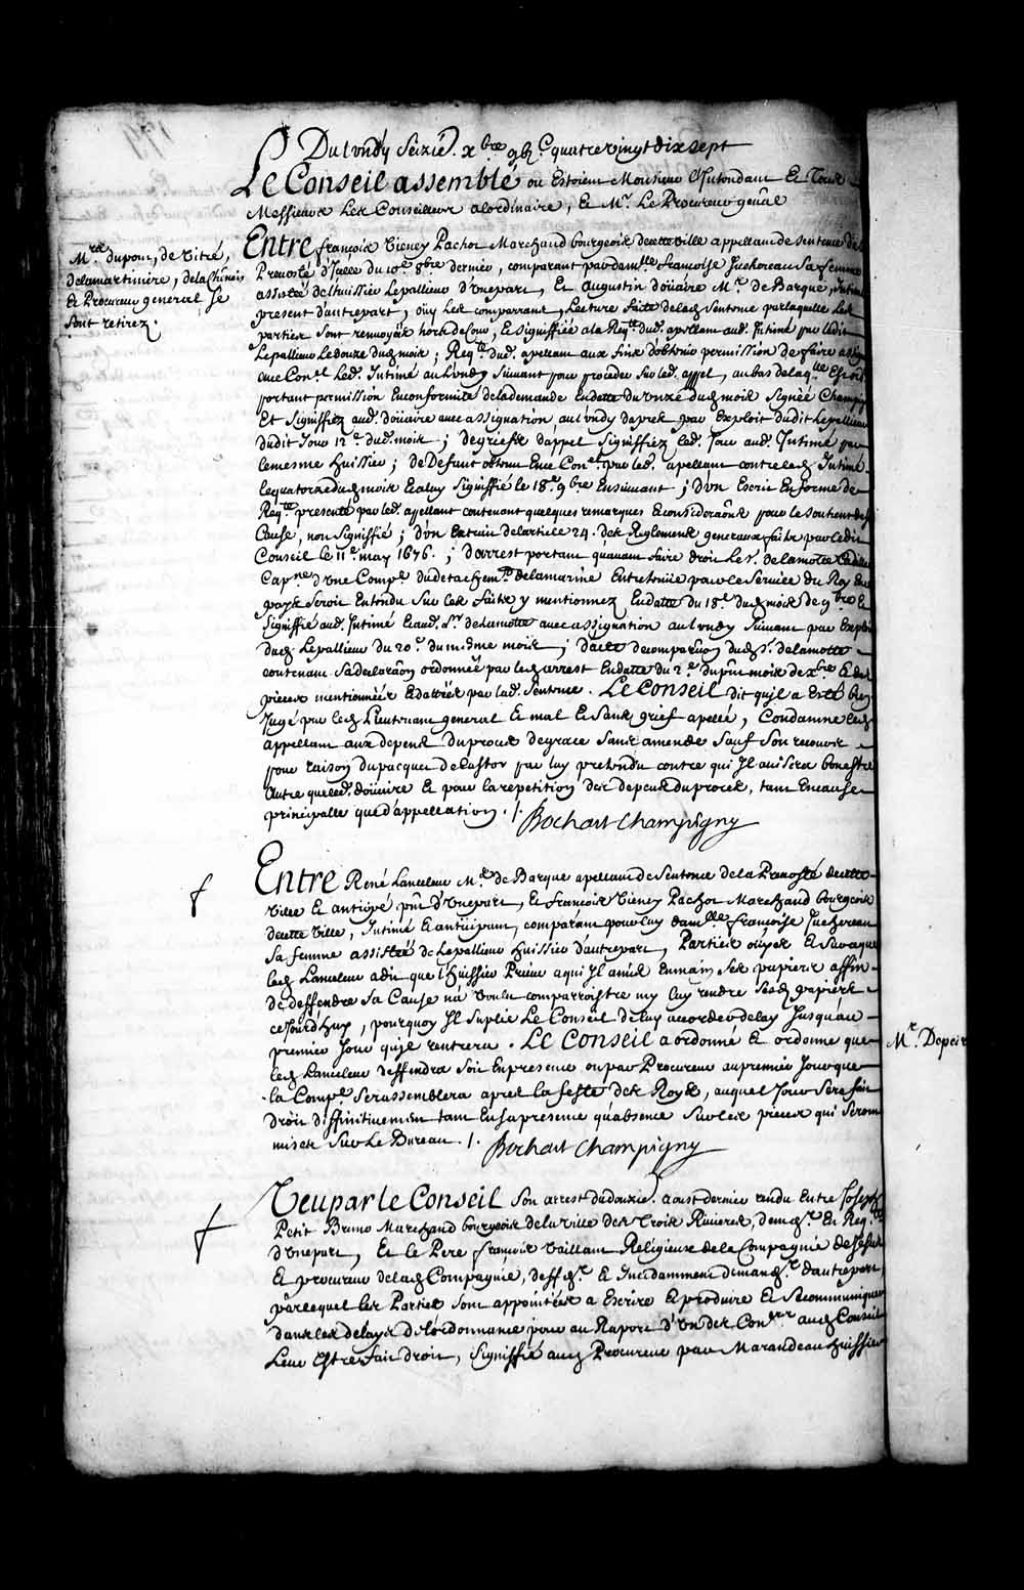 Du Lundy Seizie. xbre gbj.C quatrevingt dix sept
Le Conseil assemblé ou Estoient Monsieur L'Intendant Et Tous
Messieurs Les Conseillers alordinaire, Et Mr. Le Procureur gnâl
Mrs dupont, de Vitré,
delamartiniere, delaChenais
Et Procureur general Se
Sont retirez.
Entre françois Vieney Pachot Marchand bourgeois decette Ville appellant de Sentence de la
Prevosté d'Icelle du 10e 8bre dernier, comparant par damlle francoise Juchereau Sa femme
assistée de l'huissier Lepallieur d'Unepart, Et augustin doüaire Me de Barque, Intimé
present d'autrepart, Oüy Les comparrans, Lecture faite delad. Sentence par laquelle Les
parties Sont renvoyées hors de Cour, Et Signiffiée a la Reqte dud. apellant aud. Intimé par ledit
Lepallieur Le douze dud. mois; Reqte dud. apellant aux fins d'obtenir permission de faire
en ce Conel Led. Intimé au Lundy Suivant pour proceder Sur led. appel, au bas de laqlle Est
portant permission En conformité de la demande En datte du Unze dud. mois Signée Champigny
Et Signiffiez aud. doüaire avec assignation au lundy daprés par Exploit dudit Lepallieur
dudit Jour 12e dud. mois; de griefs d'appel Signiffiez led. Jour aud. Intimé par
lemesme huissier; de Defaut obtenu En ce Conel par led. apellant contre led. Intimé
le quatorze dud. mois Et a luy Signiffié le 18e 9bre Ensuivant; d'Un Escrit En forme de
Reqte presenté par led. apellant contenant quelques remarques Et considerâons pour le Soutient de Sa
Cause, non Signiffié; d'Un Extrait de larticle 24. des Reglemens generaux faits par ledit
Conseil le 11e may 1676.; d'arrest portant qu'avant faire droit Le Sr. delamotte Cadillac
Capne d'Une Compe du detachemt de la marine Entretenüe pour le Service du Roy En ce
pays Seroit Entendu Sur les faits y mentionnez En datte du 18e dud. mois de 9bre Et
Signiffié aud. Intimé Et aud. Sr delamotte avec assignation au lundy Suivant par Exploit
dud. Lepallieur du 20e du mesme mois; d'acte de comparûon dud. Sr. delamotte
contenant Sa declarâon ordonnée par led. arrest En datte du 2e du pnt mois de xbre Et des
pieces mentionnées Et dattées par lad. Sentence. Le Conseil dit qu'il a Esté bien
Jugé par led. Lieutenant general Et mal Et Sans grief apellé, Condamne led.
appellant aux depens du procès de grace Sans amende Sauf Son recours
pour raison du pacquet de Castor par luy pretendu contre qui Il avisera bon estre
autre que led. doüaire Et pour la repetition des depens du procés, tant En cause
principalle que d'appellation. /. Bochart Champigny
Entre René Lanceleur Me de Barque apellant de Sentence de la Prevosté de cette
Ville Et anticipé pnt d'Unepart, Et francois Vieney Pachot Marchand bourgeois
de cette Ville, Intimé Et anticipant, comparant pour luy damlle francoise Juchereau
Sa femme assistée de Lepallieur huissier d'autrepart, Parties oüyes Et Sur ce que
led. Lanceleur a dit que l'huissier Prieur a qui Il a mis En main Ses papiers affin
de deffendre Sa Cause n'a Voulu comparroistre ny luy rendre Sesd. papiers
ce Jourd'huy, pourquoy Il Suplie Le Conseil de luy accorder delay Jusqu'au
premier Jour qu'il rentrera. Le Conseil a ordonné Et ordonne que
led. Lanceleur deffendra Soit En presence ou par Procureur au premier Jour que
la Compe Se rassemblera apres la feste des Roys, auquel Jour Sera fait
droit diffinitivement tant En Sa presence qu'absence Sur les pieces qui Seront
mises Sur Le Bureau. /. Bochart Champigny
Mr. Depeir
Veu par le Conseil Son arrest du douzie. aoust dernier rendu Entre Joseph
Petit Bruno Marchand bourgeois de la Ville des Trois Rivieres, demdr. En Reqte
d'Unepart, Et Le Pere françois Vaillant Religieux de la Compagnie de Jesus
Et procureur de lad. Compagnie, deffdr. Et Incidamment demandr. d'autrepart
par lequel les Parties Sont appointées a Escrire Et produire Et Se communiquer
dans les delays de l'ordonnance pour au Raport d'Un des Coners aud. Conseil
Leur Estre fait droit, Signiffié aud. Procureur par Marandeau huissier